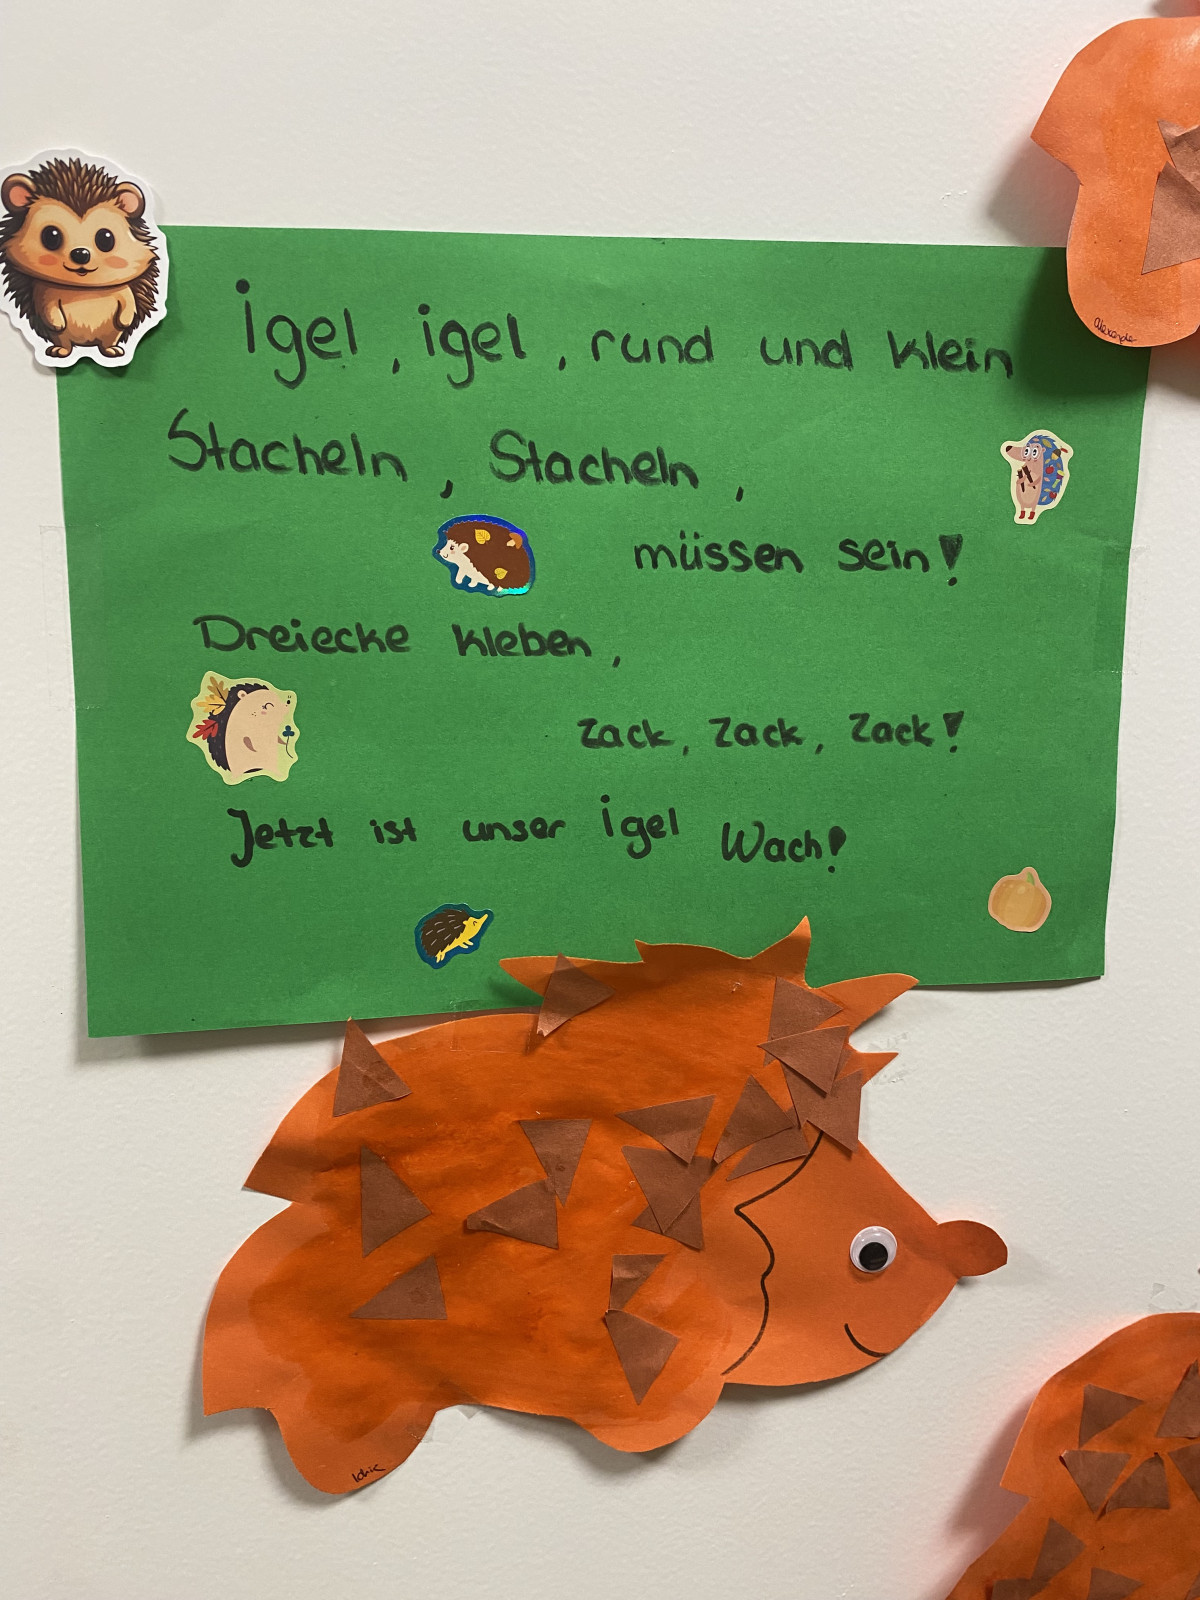 Igel, igel, rund und klein
Stacheln, Stacheln,
müssen sein!
Dreiecke kleben,
zack, zack, zack!
Jetzt ist unser Igel Wach!